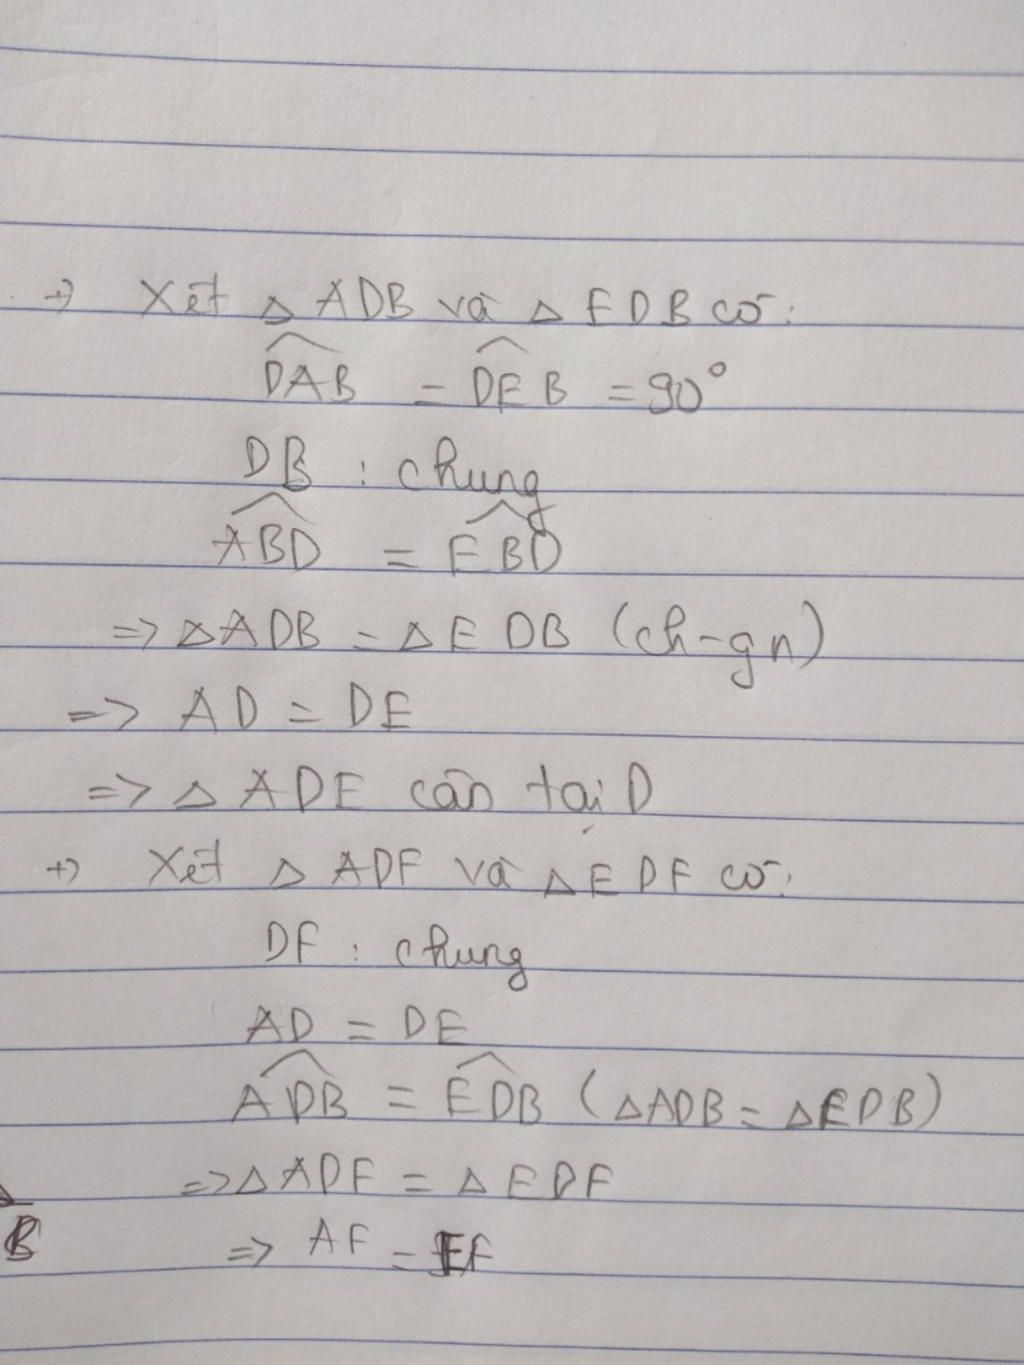 +) Xét △ ADB và △ EDB có:
$\widehat{DAB}$ = $\widehat{DEB}$ = 90°
DB : chung
$\widehat{ABD}$ = $\widehat{EBD}$
=> △ ADB = △ EDB (ch-gn)
=> AD = DE
=> △ ADE cân tại D
+) Xét △ ADF và △ EDF có:
DF : chung
AD = DE
$\widehat{ADB}$ = $\widehat{EDB}$ (△ADB = △EDB)
=> △ ADF = △ EDF
B
=> AF = EF